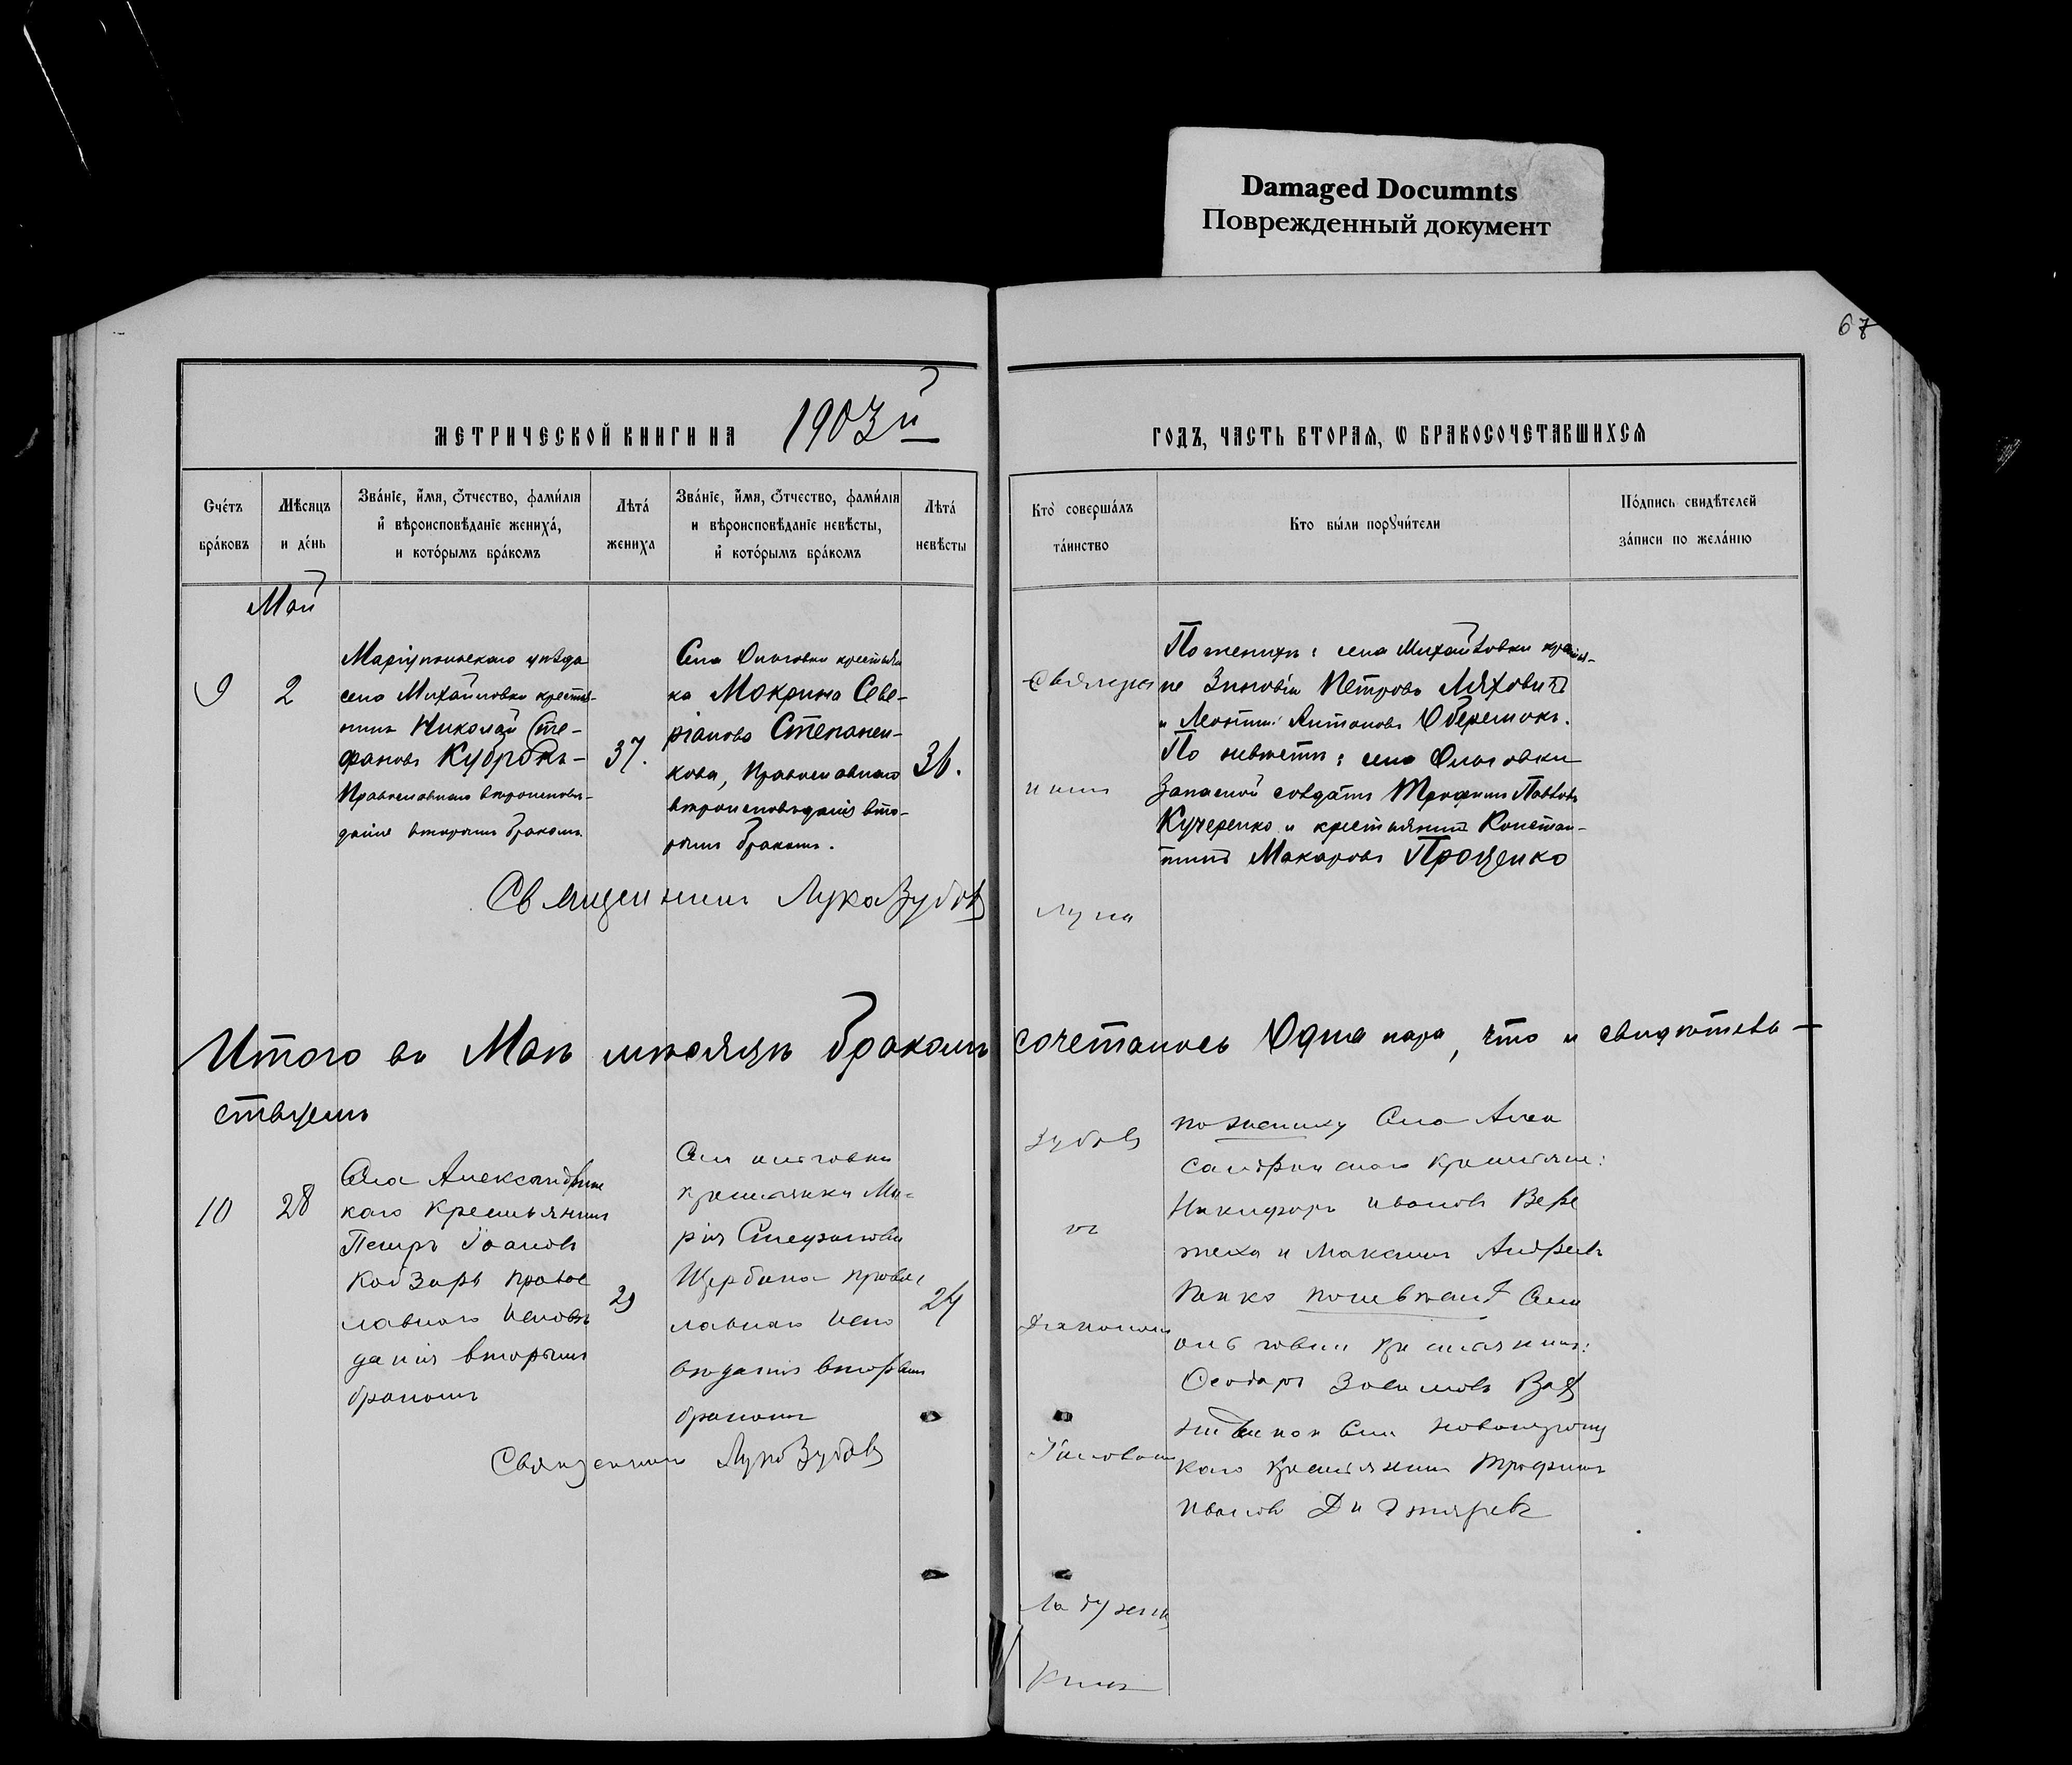 Damaged Documnts
Поврежденный документ
67
МЕТРИЧЕСКОЙ КНИГИ НА 1903й
ГОДЪ, ЧАСТЬ ВТОРАЯ, Ѡ БРАКОСОЧЕТАВШИХСЯ
Счéтъ брáковъ
Мѣсяцъ и дéнь
Звáнїе, и҆́мя, ѻ҆́тчество, фамѝлїя
и҆ вѣроисповѣ́данїе женихá,
и котóрымъ брáкомъ
Лѣтá жениха
Звáнїе, и҆́мя, ѻ҆́тчество, фамѝлїя
и вѣроисповѣ́данїе невѣ́сты,
и҆ котóрымъ брáкомъ
Лѣтá невѣ́сты
Ктò совершáлъ тáинство
Кто бы́ли порꙋчи́тели
Пóдпись свидѣ́телей
зáписи по желáнїю
Май
9
2
Маріупольскаго уѣзда
села Михайловки крестья-
нинъ Николай Сте-
фановъ Кубракъ-
Православнаго вѣроисповѣ-
данія вторымъ бракомъ
37.
Села Ольговки крестьян
ка Мокрина Севе-
ріанова Степанен-
кова, Православнаго
вѣроисповѣданія вто-
рымъ бракомъ.
36.
Священ
никъ
Лука
По женихѣ: села Михайловки крестья-
не Зиновій Петровъ Ляховъ
и Леонтій Антоновъ Оберемокъ.
По невѣстѣ: села Ольговки
Запасной солдатъ Трофимъ Павловъ
Кучеренко и крестьянинъ Констан-
тинъ Макаровъ Проценко
Священникъ Лука Зубовъ
Итого въ Маѣ мѣсяцѣ бракомъ сочеталось Одна пара, что и свидѣтель-
ствуемъ
10
28
Села Александринс
каго крестьянинъ
Петръ Іоановъ
Кобзарь правос
лавнаго исповѣ
данія вторымъ
бракомъ
29
Села ольговки
крестьянка Ма-
рія Стефанова
Щербина правос
лавнаго испо
вѣданія вторымъ
бракомъ
24
Зубовъ
съ
Діакономъ
по жениху Села Алек
сандринскаго крестьяне:
Никифоръ ивановъ Вере
теха и Максимъ Андреевъ
Панко по невѣстѣ Села
ольговки крестьянинъ:
Феодоръ
каго крестьянинъ Трофимъ
ивановъ
Священникъ Лука Зубовъ